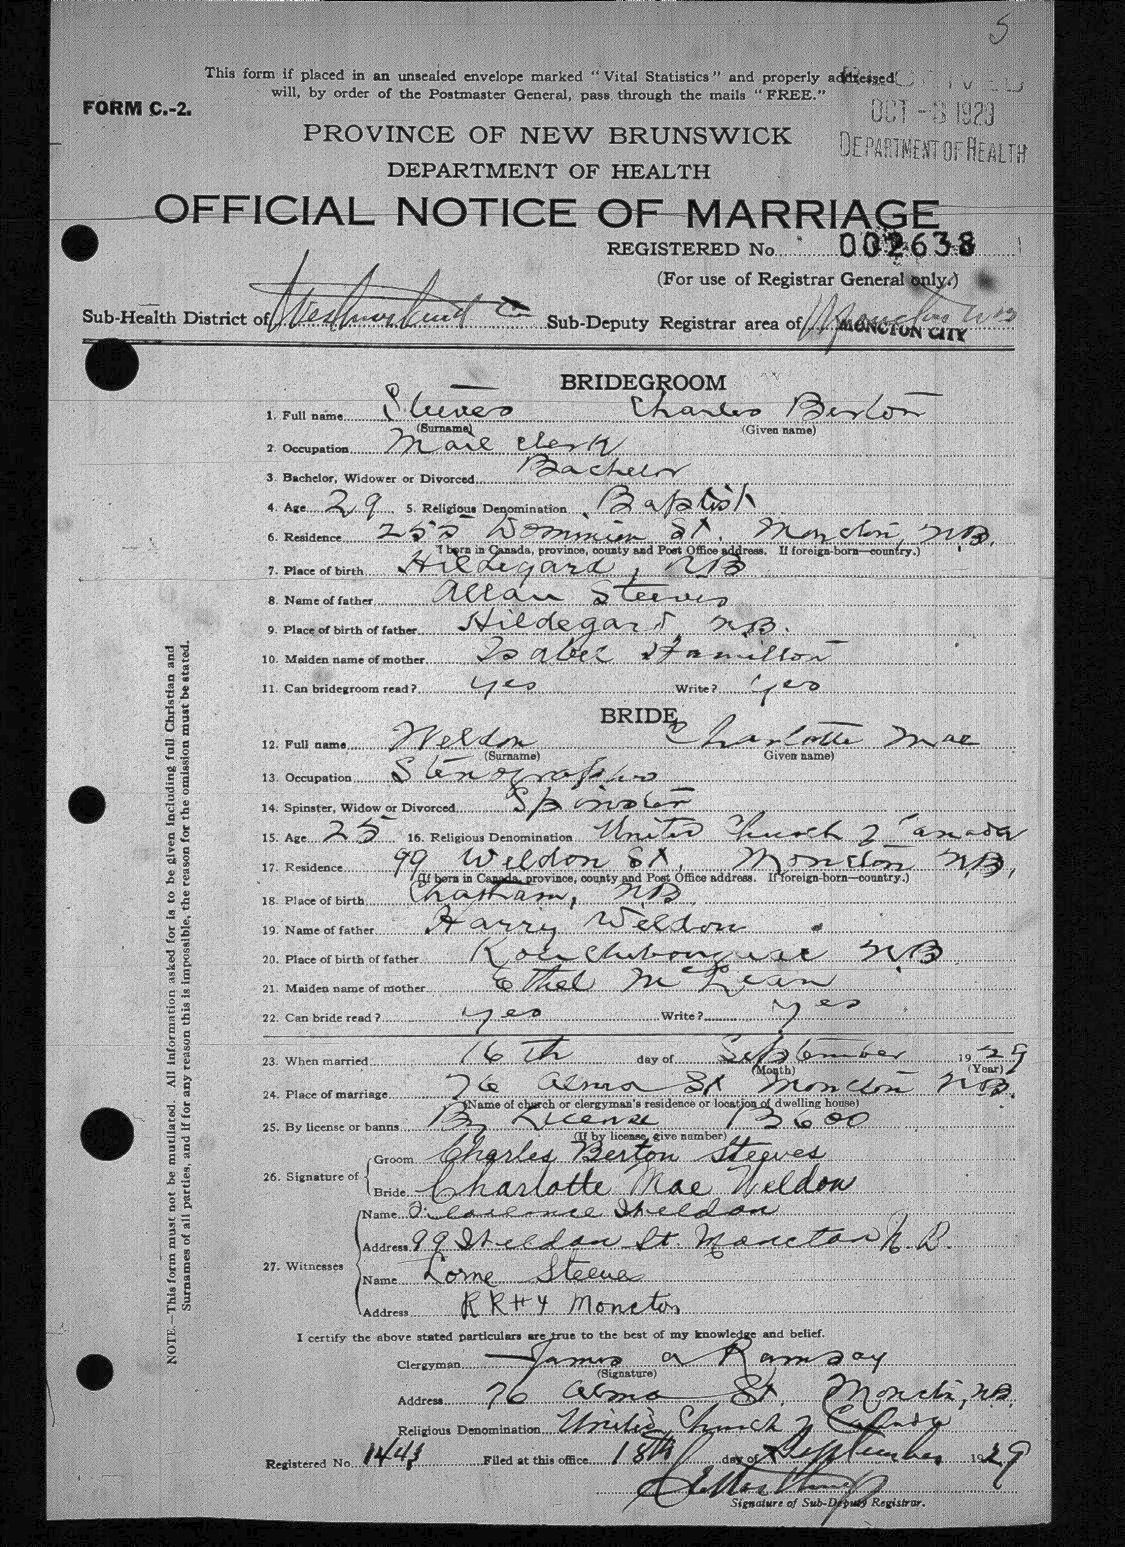 5
This form if placed in an unsealed envelope marked "Vital Statistics" and properly addressed
will, by order of the Postmaster General, pass through the mails "FREE."
FORM C.-2.
OCT - 3 1929
DEPARTMENT OF HEALTH
PROVINCE OF NEW BRUNSWICK
DEPARTMENT OF HEALTH
OFFICIAL NOTICE OF MARRIAGE
REGISTERED No. 002638
(For use of Registrar General only.)
Sub-Health District of Westmorland Sub-Deputy Registrar area of Moncton NB
MONCTON CITY
BRIDEGROOM
1. Full name Steeves Charles Berton
(Surname) (Given name)
2. Occupation Mail Clerk
3. Bachelor, Widower or Divorced Bachelor
4. Age 29 5. Religious Denomination Baptist
6. Residence 255 Dominion St. Moncton, N.B.
If born in Canada, province, county and Post Office address. If foreign-born—country.)
7. Place of birth Hildegard, NB
8. Name of father Allan Steeves
9. Place of birth of father Hildegard, N.B.
10. Maiden name of mother Isabel Hamilton
11. Can bridegroom read? yes Write? yes
BRIDE
12. Full name Weldon Charlotte Mae
(Surname) Given name)
13. Occupation Stenographer
14. Spinster, Widow or Divorced Spinster
15. Age 25 16. Religious Denomination United Church of Canada
17. Residence 99 Weldon St. Moncton N.B.
(If born in Canada, province, county and Post Office address. If foreign-born—country.)
18. Place of birth Chatham, NB
19. Name of father Harry Weldon
20. Place of birth of father Kouchibouguac N.B.
21. Maiden name of mother Ethel McLean
22. Can bride read? yes Write? yes
23. When married 16th day of September 1929
(Month) (Year)
24. Place of marriage 76 Alma St Moncton N.B.
(Name of church or clergyman's residence or location of dwelling house)
25. By license or banns By License 13600
(If by license, give number)
26. Signature of Groom Charles Berton Steeves
Bride Charlotte Mae Weldon
27. Witnesses Name Weldon
Address 99 Weldon St. Moncton N.B.
Name Lorne Steeves
Address RR#4 Moncton
I certify the above stated particulars are true to the best of my knowledge and belief.
Clergyman James A Ramsay
(Signature)
Address 76 Alma St. Moncton, N.B.
Religious Denomination United Church of Canada
Registered No. 1443 Filed at this office 18th day of September 1929
Signature of Sub-Deputy Registrar.
NOTE.—This form must not be mutilated. All information asked for is to be given including full Christian and
Surnames of all parties, and if for any reason this is impossible, the reason for the omission must be stated.